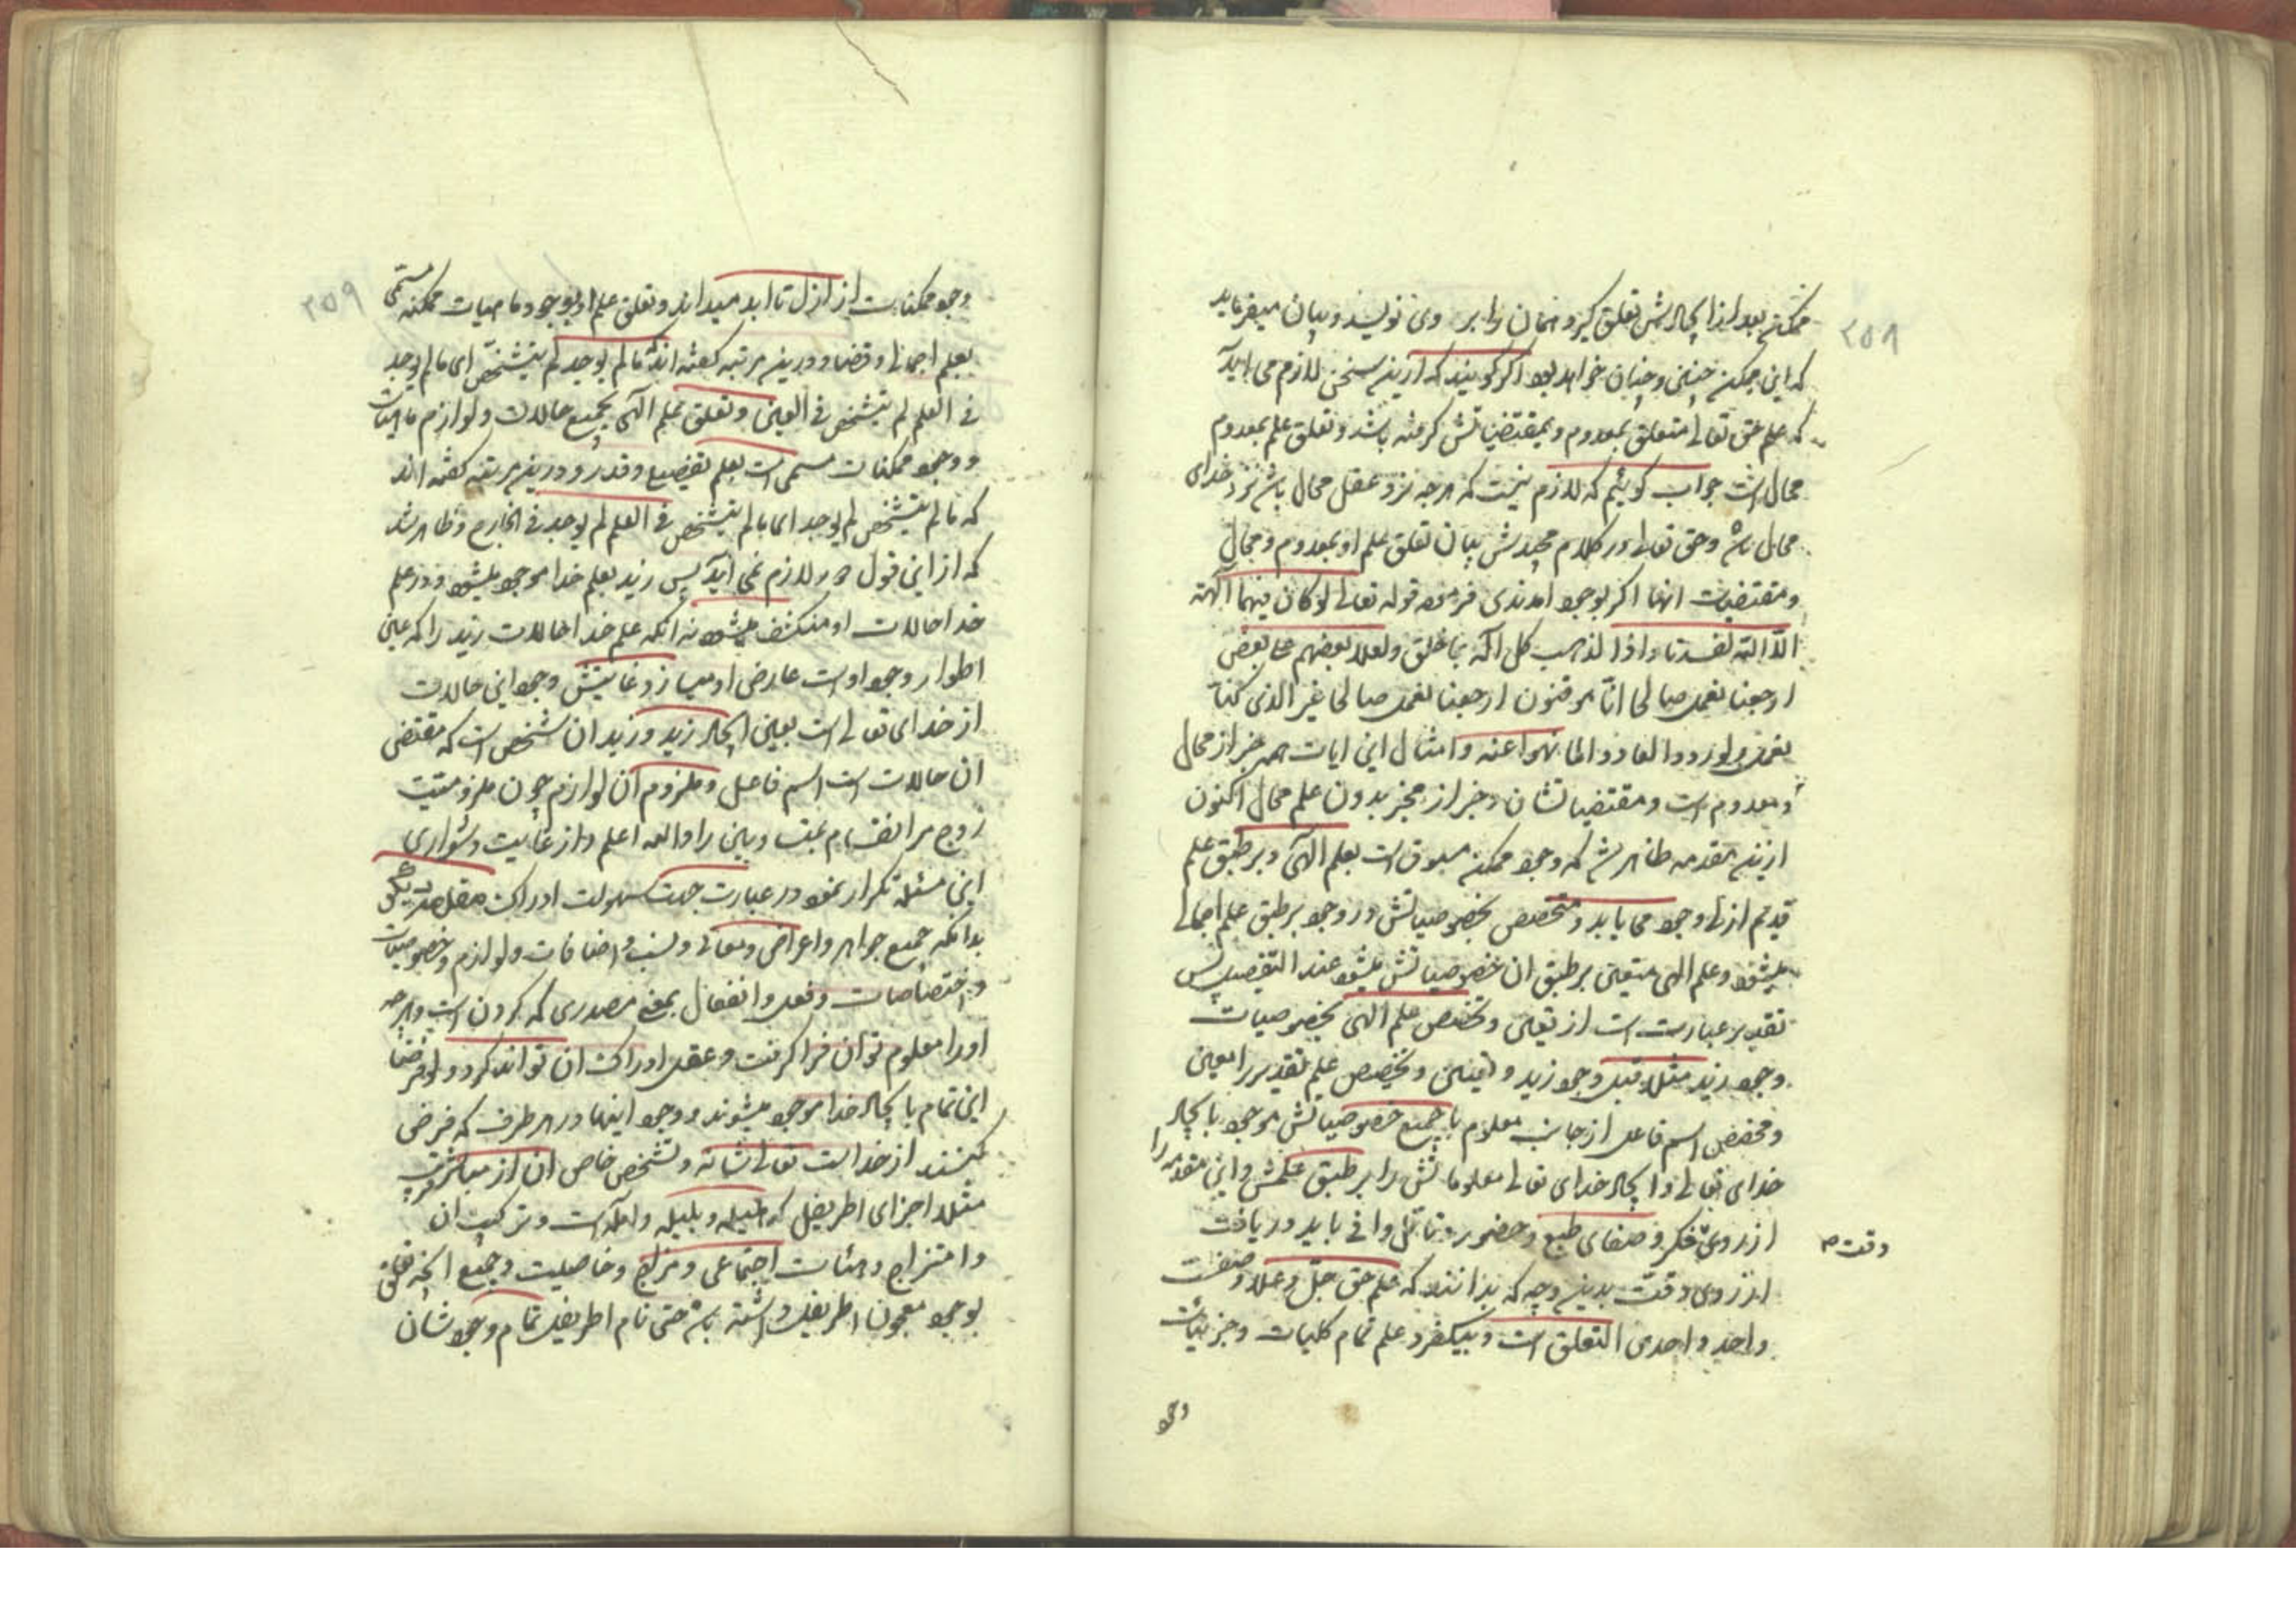 ۲۵۸
ممکن بعد از ایجادش تعلق گیرد همان را بر وی نویسد و بیان میفرماید
که این ممکن چنین و چنان خواهد بود اگر گویند که ازین سخن لازم می آید
که علم حق تعالی متعلق بمعدوم و بمقتضیاتش گرفته باشد و تعلق علم بمعدوم
محال است جواب گوئیم که لازم نیست که هرچه نزد عقل محال باشد نزد خدای
محال باشد و حق تعالی در کلام مجیدش بیان تعلق علم او بمعدوم و محال
و مقتضیات انها اگر بوجود امدندی فرموده قوله تعالی لو کان فیهما آلهة
الا الله لفسدتا و اذا لذهب کل اله بما خلق و لعلا بعضهم علی بعض
ارجعنا نعمل صالحا انا موقنون ارجعنا نعمل صالحا غیر الذی کنا
نعمل و لو ردوا لعادوا لما نهوا عنه و امثال این ایات همه خبر از محال
و معدوم است و مقتضیاتشان و خبر از مخبر بدون علم محال اکنون
ازین مقدمه ظاهر شد که وجود ممکن مسبوق است بعلم الهی و بر طبق علم
قدیم ازلی وجود می یابد و متخصص بخصوصیاتش در وجود بر طبق علم اجمالی
میشود و علم الهی متعین بر طبق ان خصوصیاتش میشود عند التفصیل پس
تقدیر عبارت است از تعین و تخصص علم الهی بخصوصیات
وجود زید مثلا قبل وجود زید و تعین و تخصص علم تقدیر را معین
و مخصص اسم فاعل از جانب معلوم با جمیع خصوصیاتش موجود با یجاد
خدای تعالی و ایجاد خدای تعالی معلوماتش را بر طبق علمش و این مقدمه را
از روی فکر و صفای طبع و حضور و تامل وافی باید دریافت
دقت م
از روی دقت بدین وجه که بدانند که علم حق جل و علا و صفت
واحد و احدی التعلق است و بیکفرد علم تمام کلیات و جزئیات
وجو
۲۵۹
وجود ممکنات از ازل تا ابد میداند و تعلق علم او بوجود ماهیات ممکنه مسمی
بعلم اجمالی و قضا و درین مرتبه گفته اند که ما لم یوجد لم یتشخص ای ما لم یوجد
فی العلم لم یتشخص فی العین و تعلق علم الهی بجمیع حالات و لوازم ماهیات
و وجود ممکنات مسمی است بعلم تفصیلی و قدر و درین مرتبه گفته اند
که ما لم یتشخص لم یوجد ای ما لم یتشخص فی العلم لم یوجد فی الخارج و ظاهر شد
که از این قول دور لازم نمی آید پس زید بعلم خدا موجود میشود و در علم
خدا حالات او منکشف میشود نه انکه علم خدا حالات زید را که عین
اطوار وجود اوست عارض او میسازد غایتش وجود این حالات
از خدای تعالی است بعین ایجاد زید و زید ان شخص است که مقتضی
ان حالات است اسم فاعل و ملزوم آن لوازم چون ملزومیت
زوج مر انقسام بمتساویین را و الله اعلم و از غایت دشواری
این مسئله تکرار نمود در عبارت جهت سهولت ادراک
بدانکه جمیع جواهر و اعراض و معانی و نسب و اضافات و لوازم و خصوصیات
و اختصاصات و فعل و انفعال بمعنی مصدری که کردن است و هرچه
او را معلوم توان فرا گرفت و عقل ادراک ان تواند کرد و لو فرضا
این تمام با یجاد خدا موجود میشوند و وجود اینها در هر طرف که فرض
کنند از خداست تعالی شانه و تشخص خاص ان از
مثلا اجزای اطریفل که هلیله و بلیله و امله است و ترکیب ان
و امتزاج و هیئات اجتماعی و مزاج و خاصیت و جمیع انچه تعلق
بوجود معجون اطریفل داشته باشد حتی نام اطریفل تمام وجودشان